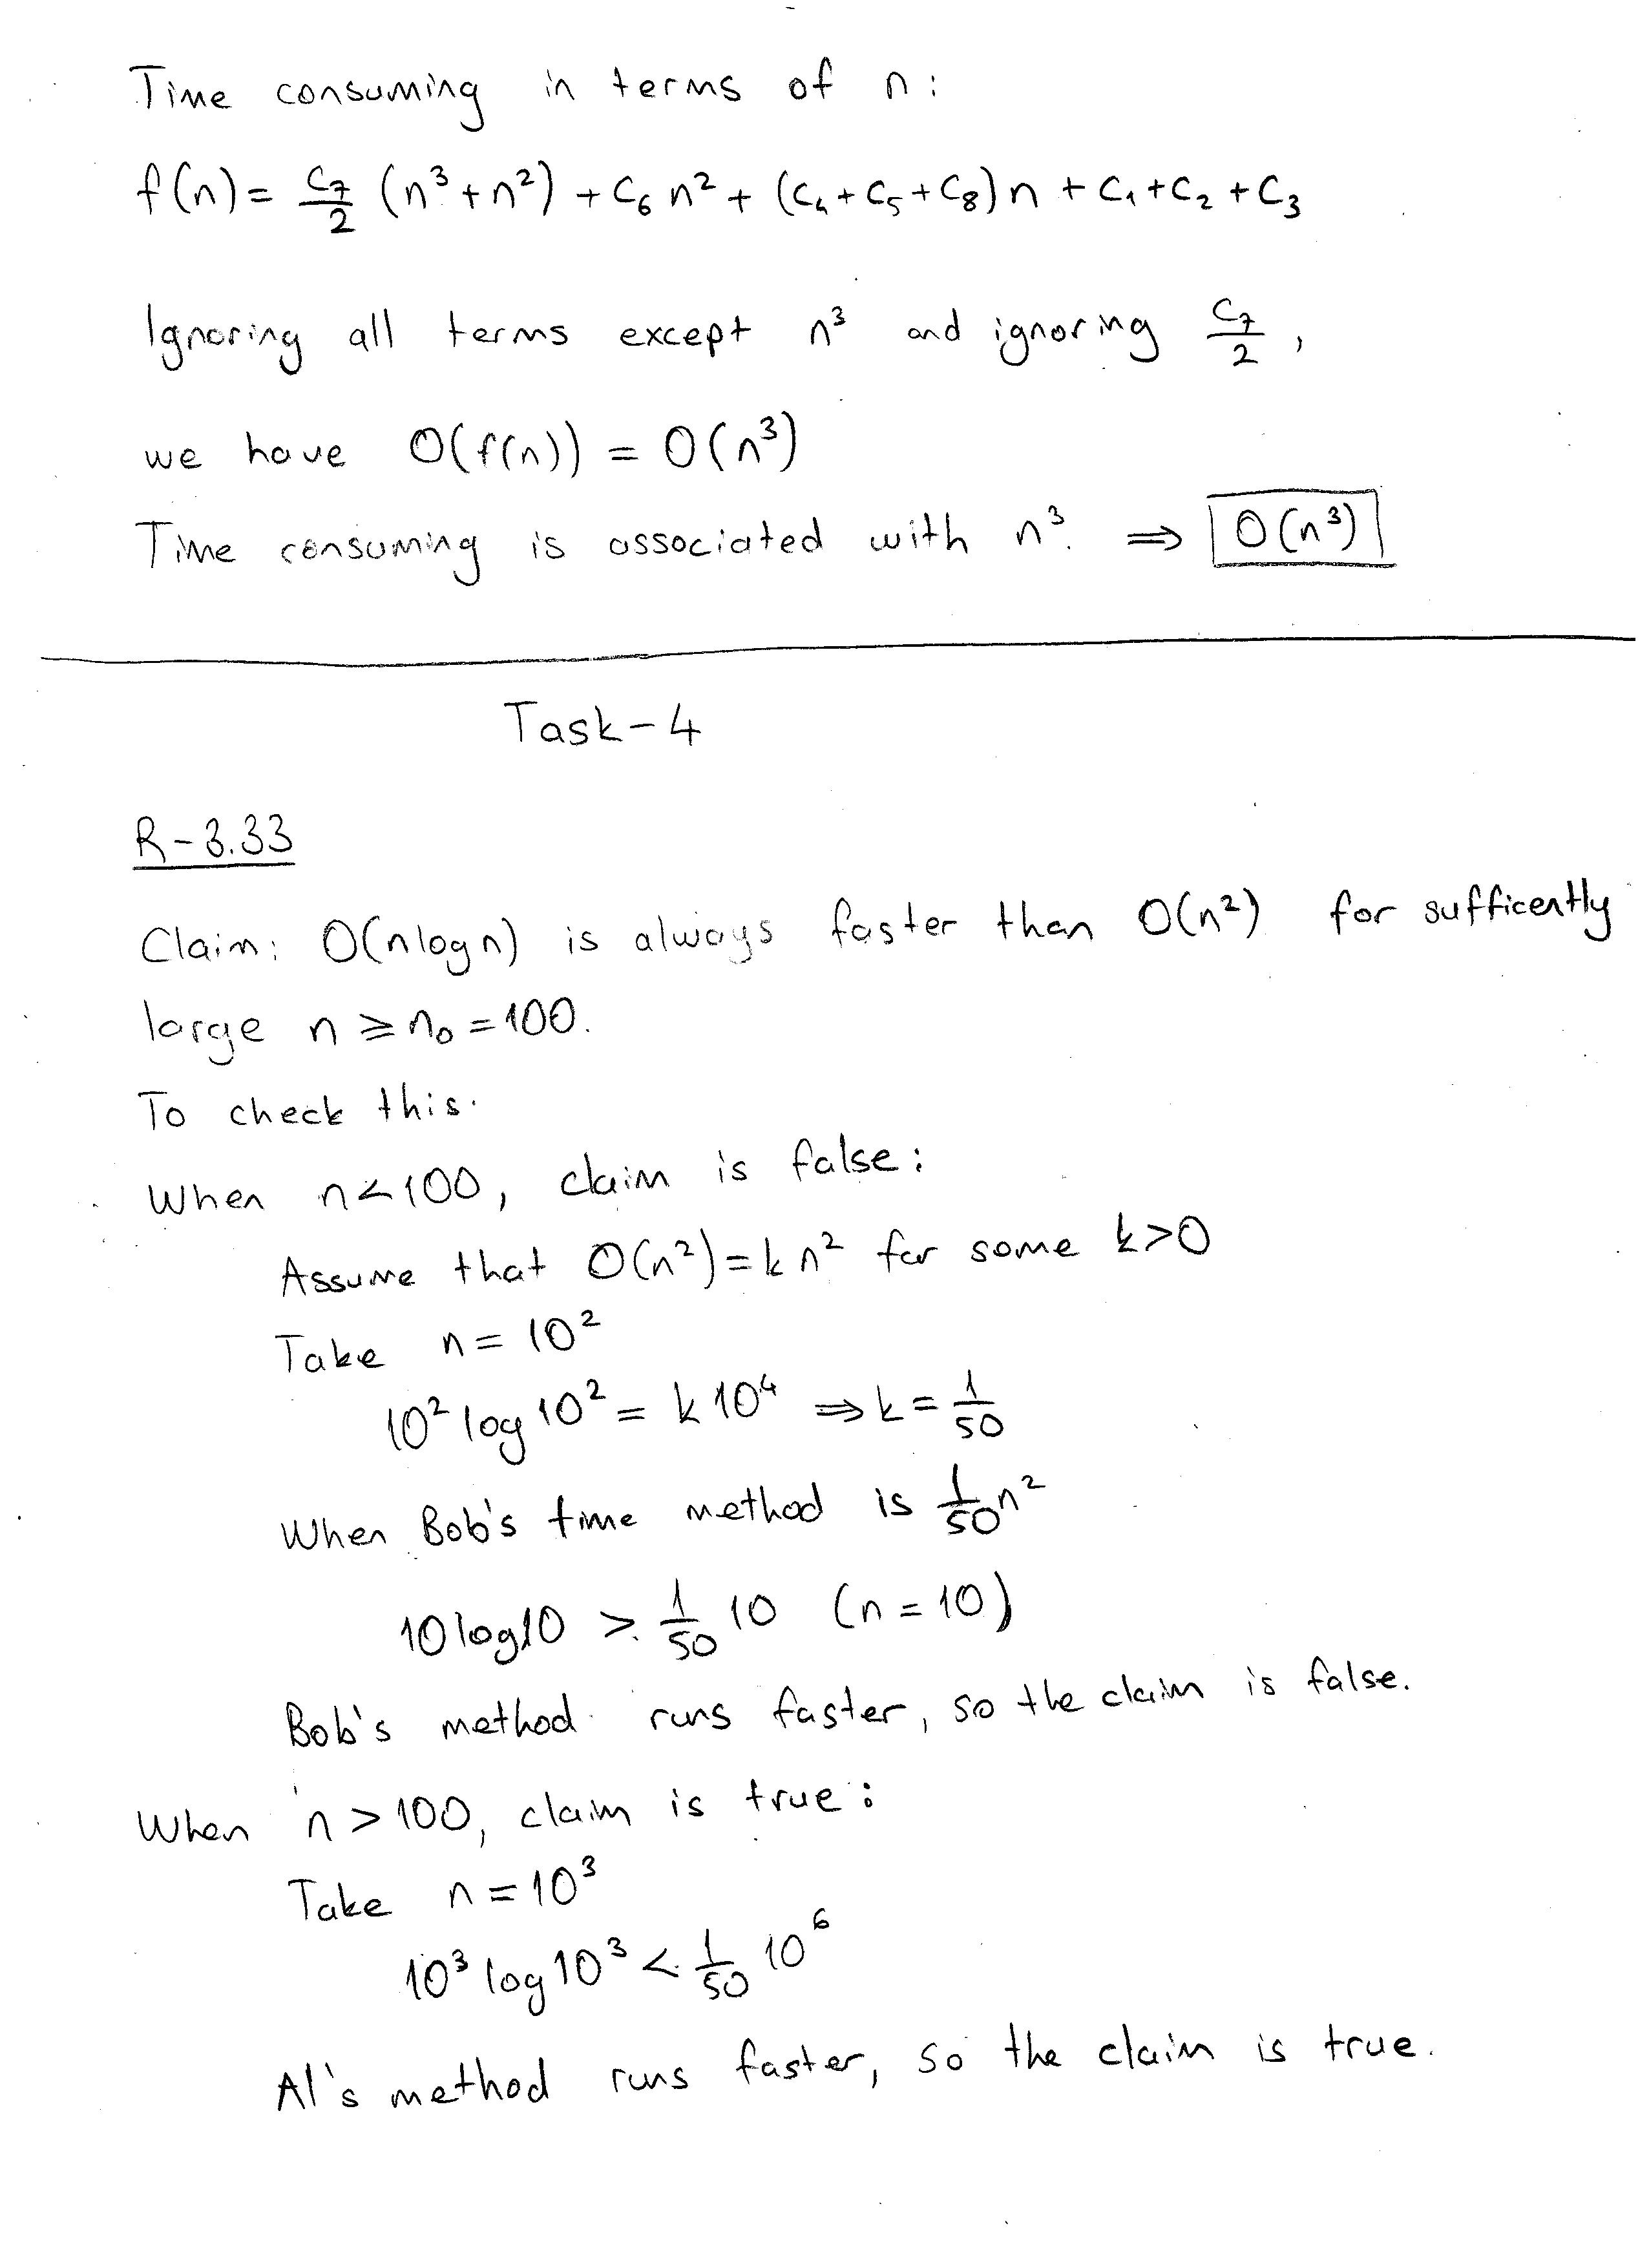 Time consuming in terms of n:
f(n) = c₇/2 (n³+n²) + c₆ n² + (c₄+c₅+c₈) n + c₁+c₂+c₃
Ignoring all terms except n³ and ignoring c₇/2,
we have O(f(n)) = O(n³)
Time consuming is associated with n³. ⇒ O(n³)
Task-4
R-3.33
Claim: O(nlogn) is always faster than O(n²) for sufficently
large n ≥ n₀ = 100.
To check this.
When n<100, claim is false:
Assume that O(n²) = k n² for some k>0
Take n = 10²
10² log 10² = k 10⁴ ⇒ k = 1/50
When Bob's time method is 1/50 n²
10 log10 > 1/50 10 (n = 10)
Bob's method runs faster, so the claim is false.
When n > 100, claim is true:
Take n = 10³
10³ log 10³ < 1/50 10⁶
Al's method runs faster, so the claim is true.